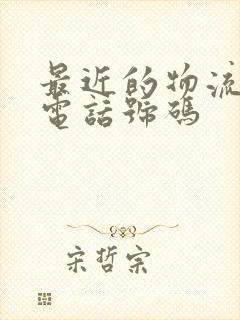 最近的物流
電話號碼
宋哲宗